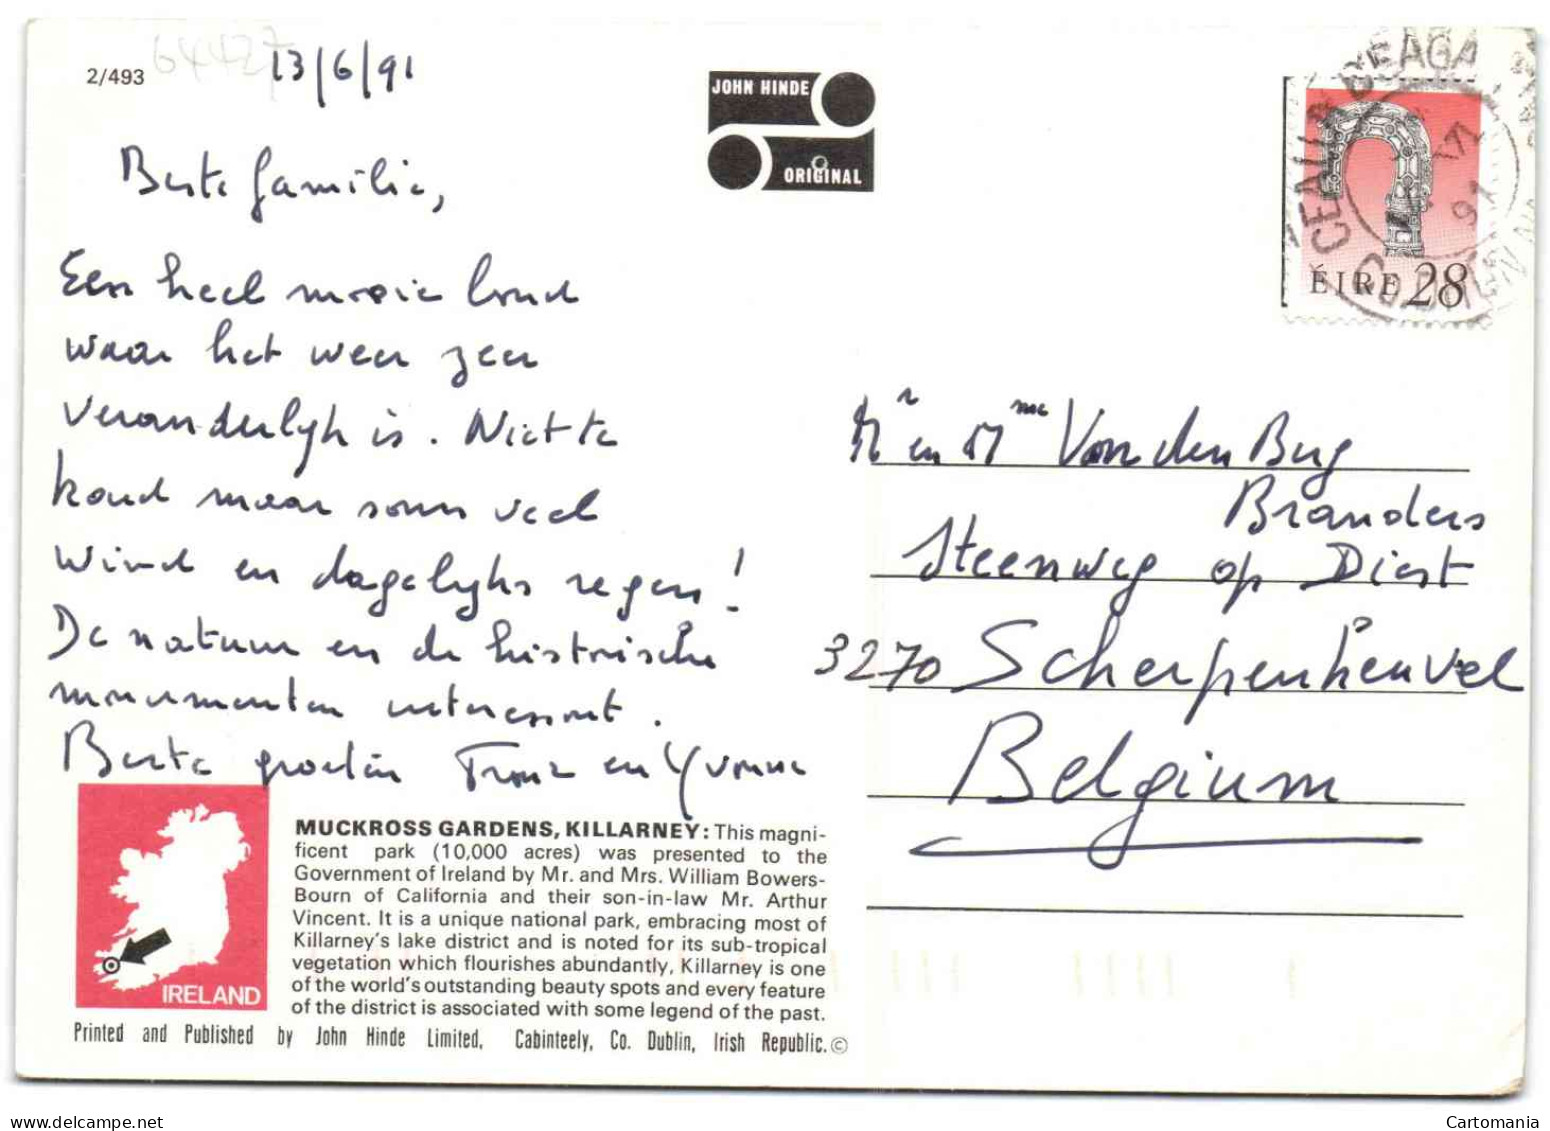 2/493
64427
13/6/91
JOHN HINDE
ORIGINAL
ÉIRE 28
Beste familie,
Een heel mooie land
waar het weer zeer
veranderlijk is. Niet te
koud maar soms veel
wind en dagelijks regen!
De natuur en de historische
monumenten interessant.
Beste groeten Franz en Yvonne
Mr en Mme Van den Berg
Branders
Steenweg op Diest
3270 Scherpenheuvel
Belgium
IRELAND
MUCKROSS GARDENS, KILLARNEY: This magni-
ficent park (10,000 acres) was presented to the
Government of Ireland by Mr. and Mrs. William Bowers-
Bourn of California and their son-in-law Mr. Arthur
Vincent. It is a unique national park, embracing most of
Killarney's lake district and is noted for its sub-tropical
vegetation which flourishes abundantly, Killarney is one
of the world's outstanding beauty spots and every feature
of the district is associated with some legend of the past.
Printed and Published by John Hinde Limited, Cabinteely, Co. Dublin, Irish Republic. ©
Cartomania